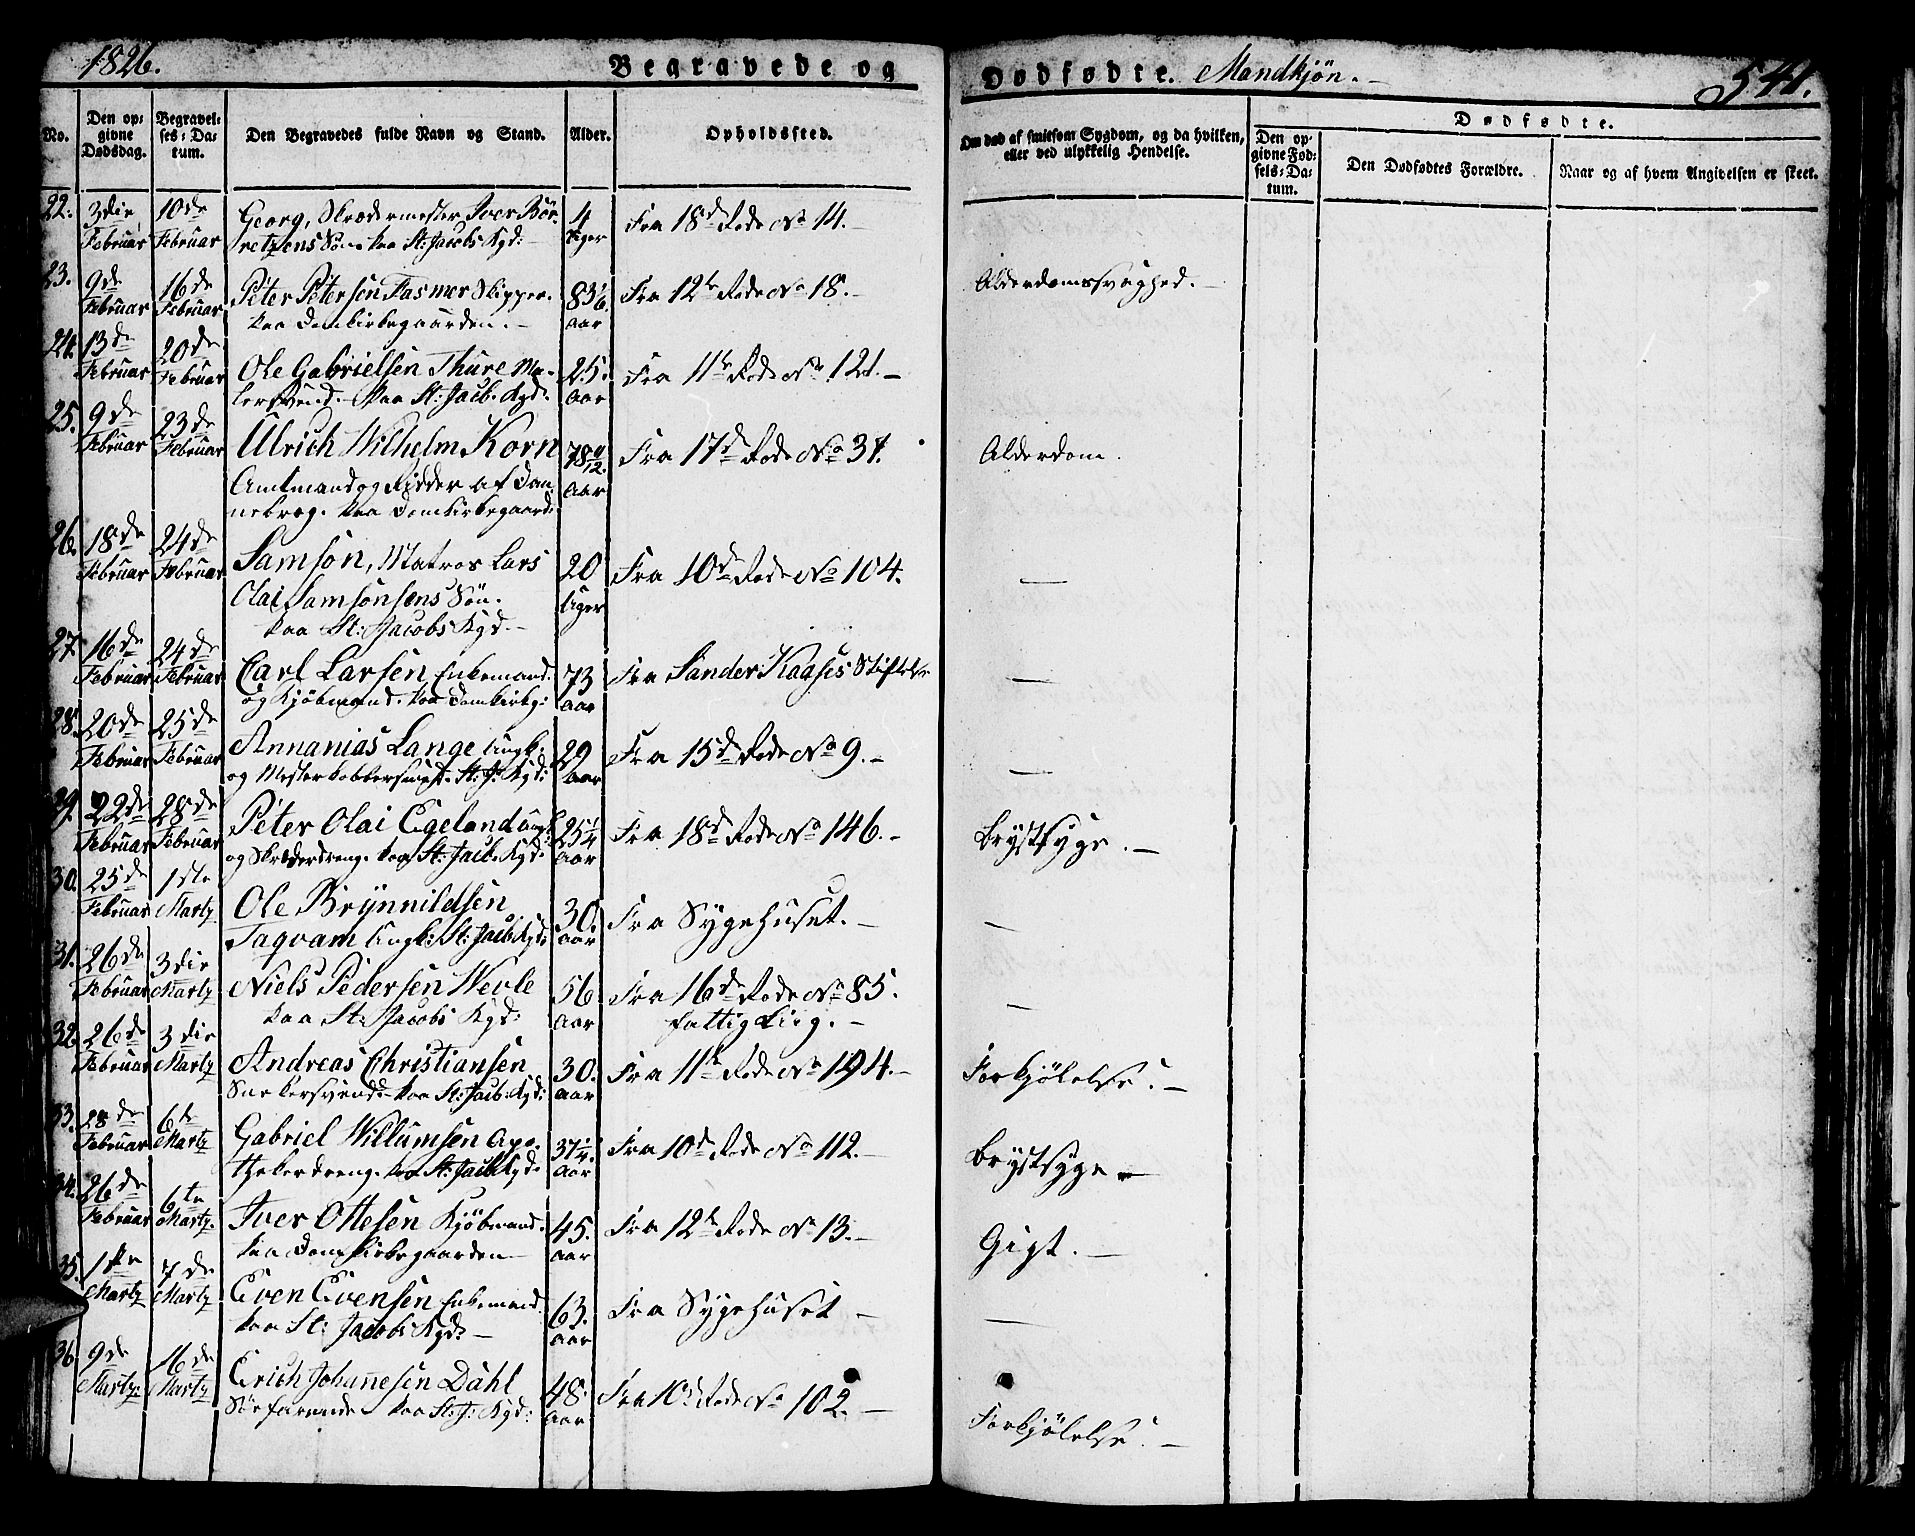 1826.
Begravede og
Dødfødte. Mandkjøn.
541.
No.
Den opgivne Dødsdag.
Begravelses-Datum.
Den Begravedes fulde Navn og Stand.
Alder.
Opholdssted.
Om død af smitsom Sygdom, og da hvilken, eller ved ulykkelig Hendelse.
Dødfødte.
Den opgivne Fødsels-Datum.
Den Dødfødtes Forældre.
Naar og af hvem Angivelsen er skeet.
22. 3die 10de Georg, Skrædermester Iver Bör- 4 Fra 18d Rode No 14.
Februar Februar retzens Sön. paa St: Jacobs Kgd: Uger
23. 9de 16de Peter Petersen Fasmer Skipper. 83 1/6 Fra 12te Rode No 18. Alderdomssvaghed.
Februar Februar paa Domkirkegaarden. Aar
24. 13de 20de Ole Gabrielsen Thure Ma- 25. Fra 11te Rode No 121.
Februar Februar lersvend. paa St: Jacb. Kgd: Aar
25. 9de 23de Ulrich Wilhelm Korn 78 Fra 17d Rode No 37. Alderdom.
Februar Februar Amtmand og Ridder af Dan- Aar
nebrog. paa Domkirkegaard:
26. 18de 24de Samson, Matros Lars 20 Fra 10d Rode No 104. —
Februar Februar Olai Samsonsens Sön. Uger
paa St: Jacobs Kgd.
27. 16de 24de Carl Larsen Enkemand 73 Fra Sander Kaases Stiftelse —
Februar Februar og Kjöbmand. paa Domkirkg: Aar
28. 20de 25de Annanias Lange Ungk: 29 Fra 15d Rode No 9. —
Februar Februar og Mester Kobbersmed. St: J: Kgd: Aar
29. 22de 28de Peter Olai Egeland Ungk: 25 1/4 Fra 18d Rode No 146. Brystsyge.
Februar Februar og Skræderdreng. paa St: Jacb. Kgd: Aar
30. 25de 1ste Ole Brynnildsen 30. Fra Sygehuset. —
Februar Martz Taqvam Ungk: St: Jacb Kgd: Aar
31. 26de 3die Niels Pedersen Wevle 56 Fra 16d Rode No 85. —
Februar Martz paa St: Jacobs Kgd: Aar
32. 26de 3die Andreas Christiansen 30. Fra 11te Rode No 194. Forkjölelse.
Februar Martz Snekersvend. paa St: Jacb: Kgd: Aar
33. 28de 6te Gabriel Willumsen Apo- 37 1/4. Fra 10d Rode No 112. Brystsyge
Februar Martz thekerdreng. paa St: Jacb Kgd. Aar
34. 26de 6te Iver Ottesen Kjöbmand. 45. Fra 12te Rode No 13. Gigt.
Februar Martz. paa Domkirkegaarden Aar
35. 1ste 7de Even Evensen Enkemand. 63. Fra Sygehuset —
Martz Martz paa St: Jacobs Kgd: Aar
36. 9de 16de Erich Johannesen Dahl 48 Fra 10d Rode No 102. Forkjölelse.
Martz Martz Söefarende paa St: J: Kgd: Aar